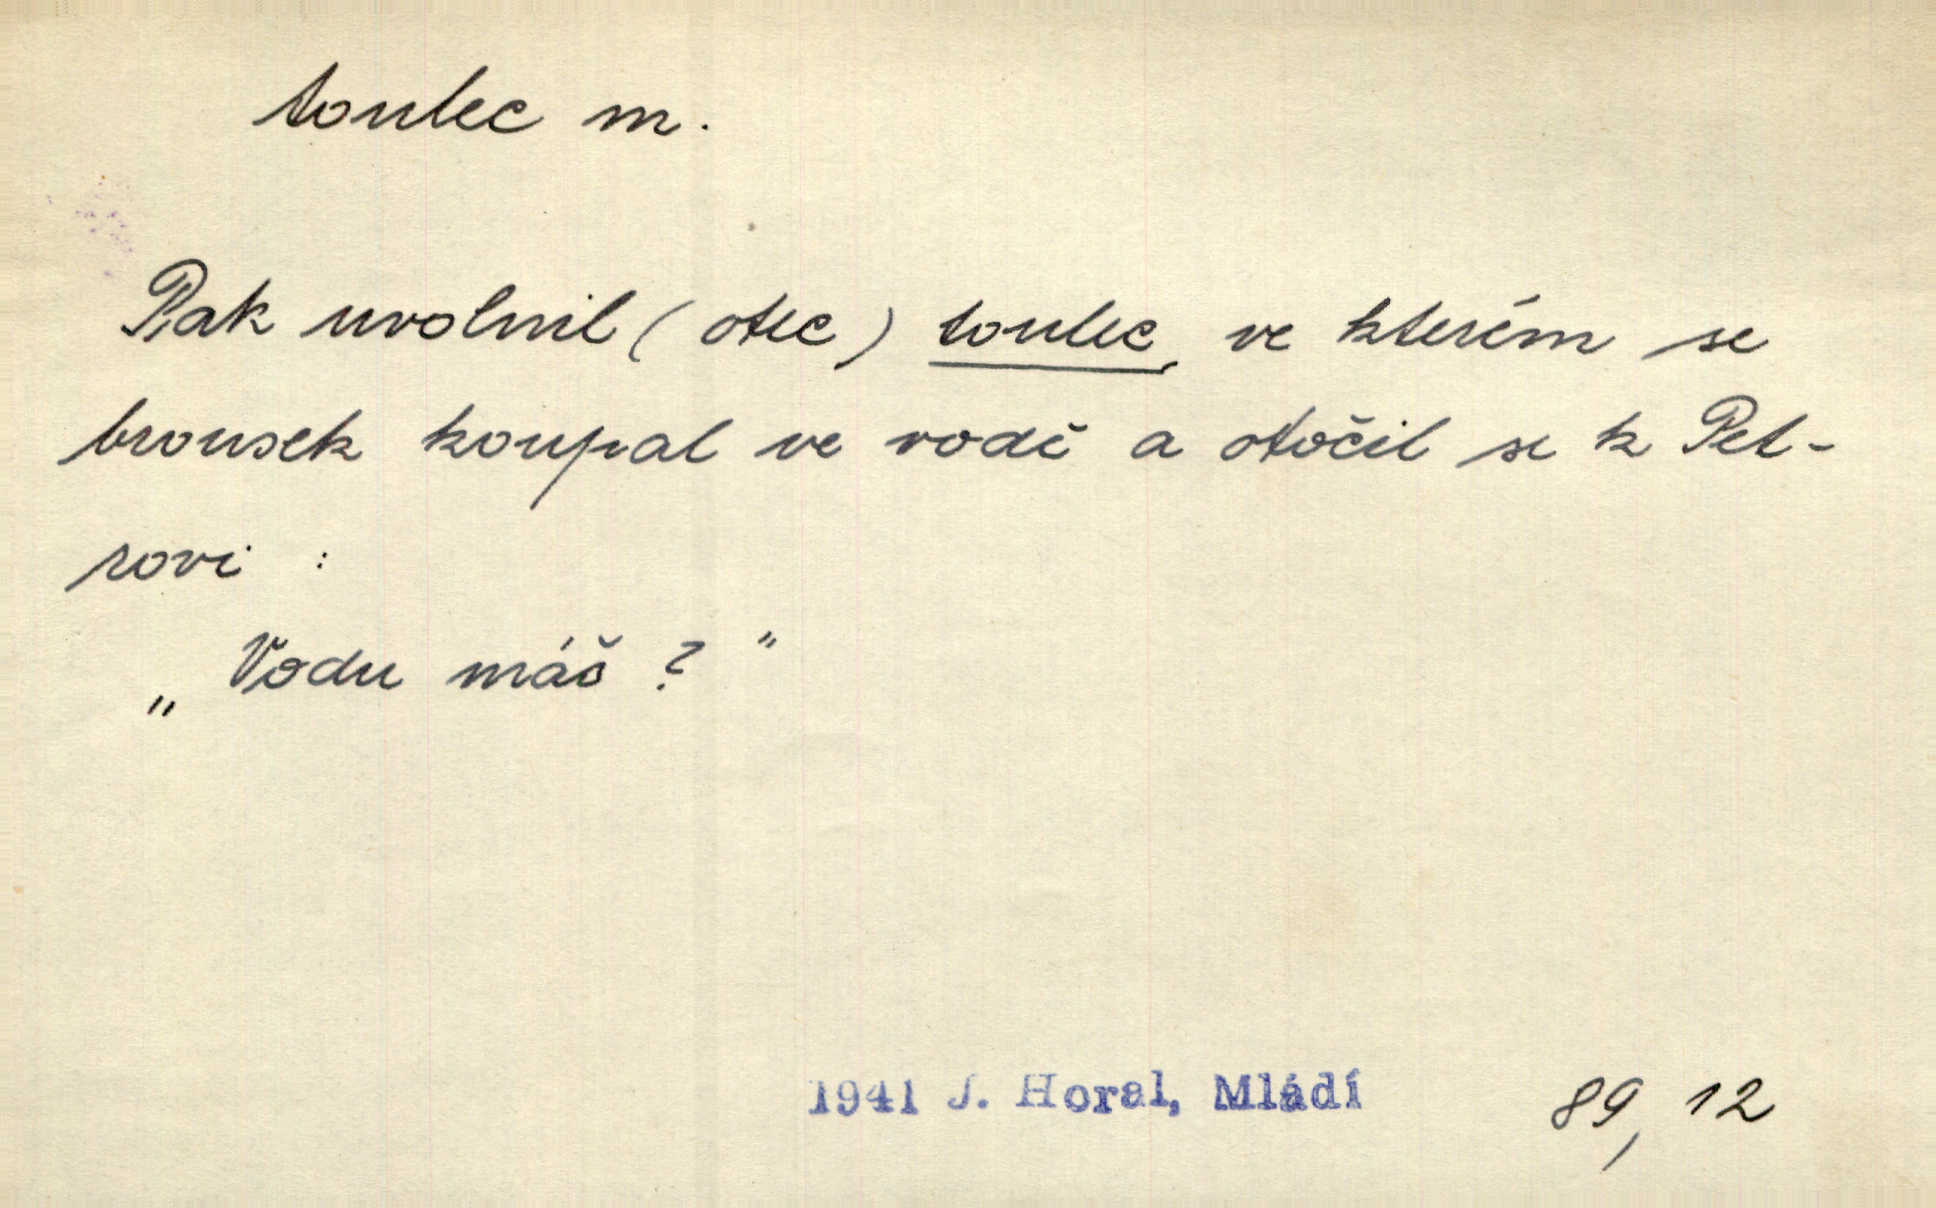 toulec m.
Pak uvolnil (otec) toulec, ve kterém se
brousek koupal ve vodě a otočil se k Pet-
rovi :
„Vodu máš ?"
1941 J. Horal, Mládí 89, 12